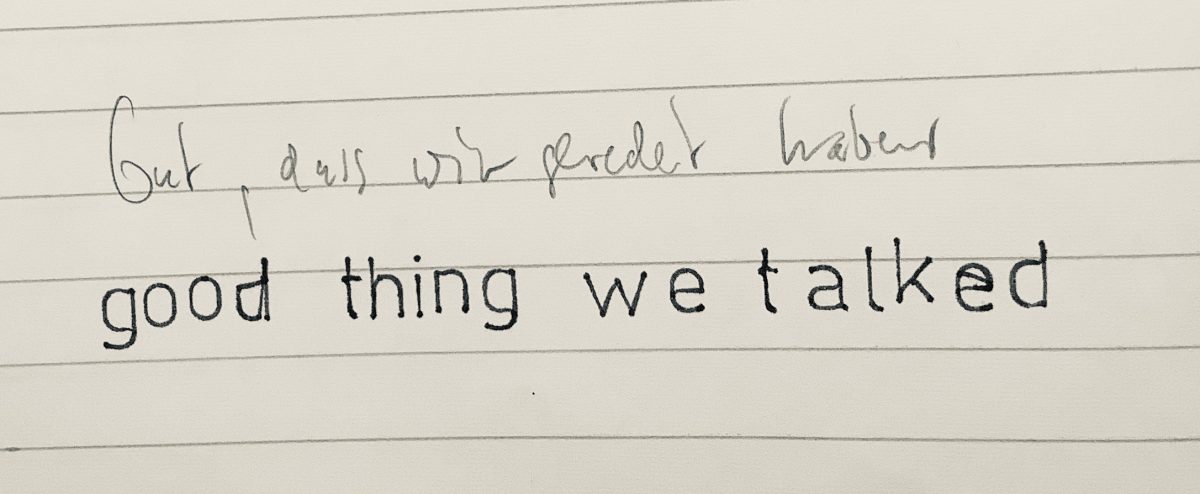 Gut, dass wir geredet haben
good thing we talked